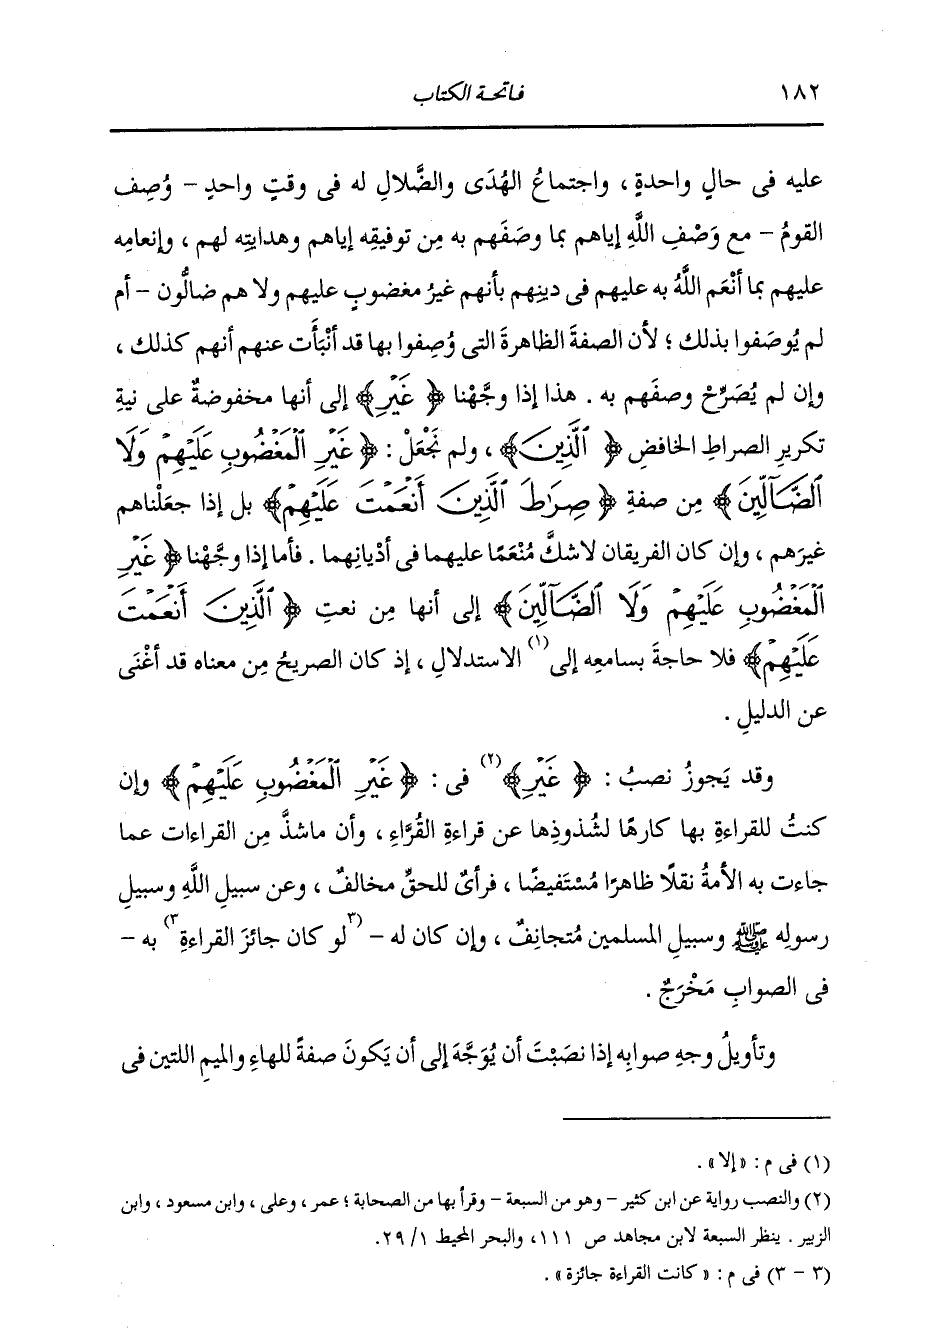 ١٨٢ فاتحة الكتاب
عليه فى حالٍ واحدةٍ ، واجتماعُ الهُدَى والضَّلالِ له فى وقتٍ واحدٍ - وُصِف
القومُ - مع وَصْفِ اللَّهِ إياهم بما وصَفَهم به مِن توفيقِه إياهم وهدايتِه لهم ، وإنعامِه
عليهم بما أنْعَم اللَّهُ به عليهم فى دينِهم بأنهم غيرُ مغضوبٍ عليهم ولا هم ضالُّون - أم
لم يُوصَفوا بذلك ؛ لأن الصفةَ الظاهرةَ التى وُصِفوا بها قد أنْبَأَت عنهم أنهم كذلك ،
وإن لم يُصَرِّحْ وصفَهم به . هذا إذا وجَّهْنا ﴿ غَيْرِ ﴾ إلى أنها مخفوضةٌ على نيةِ
تكريرِ الصراطِ الخافضِ ﴿ ٱلَّذِينَ ﴾ ، ولم نَجْعَلْ : ﴿ غَيْرِ ٱلْمَغْضُوبِ عَلَيْهِمْ وَلَا
ٱلضَّآلِّينَ ﴾ مِن صفةِ ﴿ صِرَٰطَ ٱلَّذِينَ أَنْعَمْتَ عَلَيْهِمْ ﴾ بل إذا جعَلْناهم
غيرَهم ، وإن كان الفريقان لاشكَّ مُنْعَمًا عليهما فى أدْيانِهما . فأما إذا وجَّهْنا ﴿ غَيْرِ
ٱلْمَغْضُوبِ عَلَيْهِمْ وَلَا ٱلضَّآلِّينَ ﴾ إلى أنها مِن نعتِ ﴿ ٱلَّذِينَ أَنْعَمْتَ
عَلَيْهِمْ ﴾ فلا حاجةَ بسامعِه إلى(١) الاستدلالِ ، إذ كان الصريحُ مِن معناه قد أغْنَى
عن الدليلِ .
وقد يَجوزُ نصبُ : ﴿ غَيْرِ ﴾(٢) فى : ﴿ غَيْرِ ٱلْمَغْضُوبِ عَلَيْهِمْ ﴾ وإن
كنتُ للقراءةِ بها كارهًا لشُذوذِها عن قراءةِ القُرَّاءِ ، وأن ماشذَّ مِن القراءات عما
جاءت به الأمةُ نقلًا ظاهرًا مُسْتَفيضًا ، فرأىٌ للحقِّ مخالفٌ ، وعن سبيلِ اللَّهِ وسبيلِ
رسولِه ﷺ وسبيلِ المسلمين مُتجانِفٌ ، وإن كان له - (٣لو كان جائزَ القراءةِ٣) به -
فى الصوابِ مَخْرَجٌ .
وتأويلُ وجهِ صوابِه إذا نصَبْتَ أن يُوَجَّهَ إلى أن يَكونَ صفةً للهاءِ والميمِ اللتين فى
(١) فى م : «إلا» .
(٢) والنصب رواية عن ابن كثير - وهو من السبعة - وقرأ بها من الصحابة ؛ عمر ، وعلى ، وابن مسعود ، وابن
الزبير . ينظر السبعة لابن مجاهد ص ١١١، والبحر المحيط ١/ ٢٩.
(٣ - ٣) فى م : «كانت القراءة جائزة» .